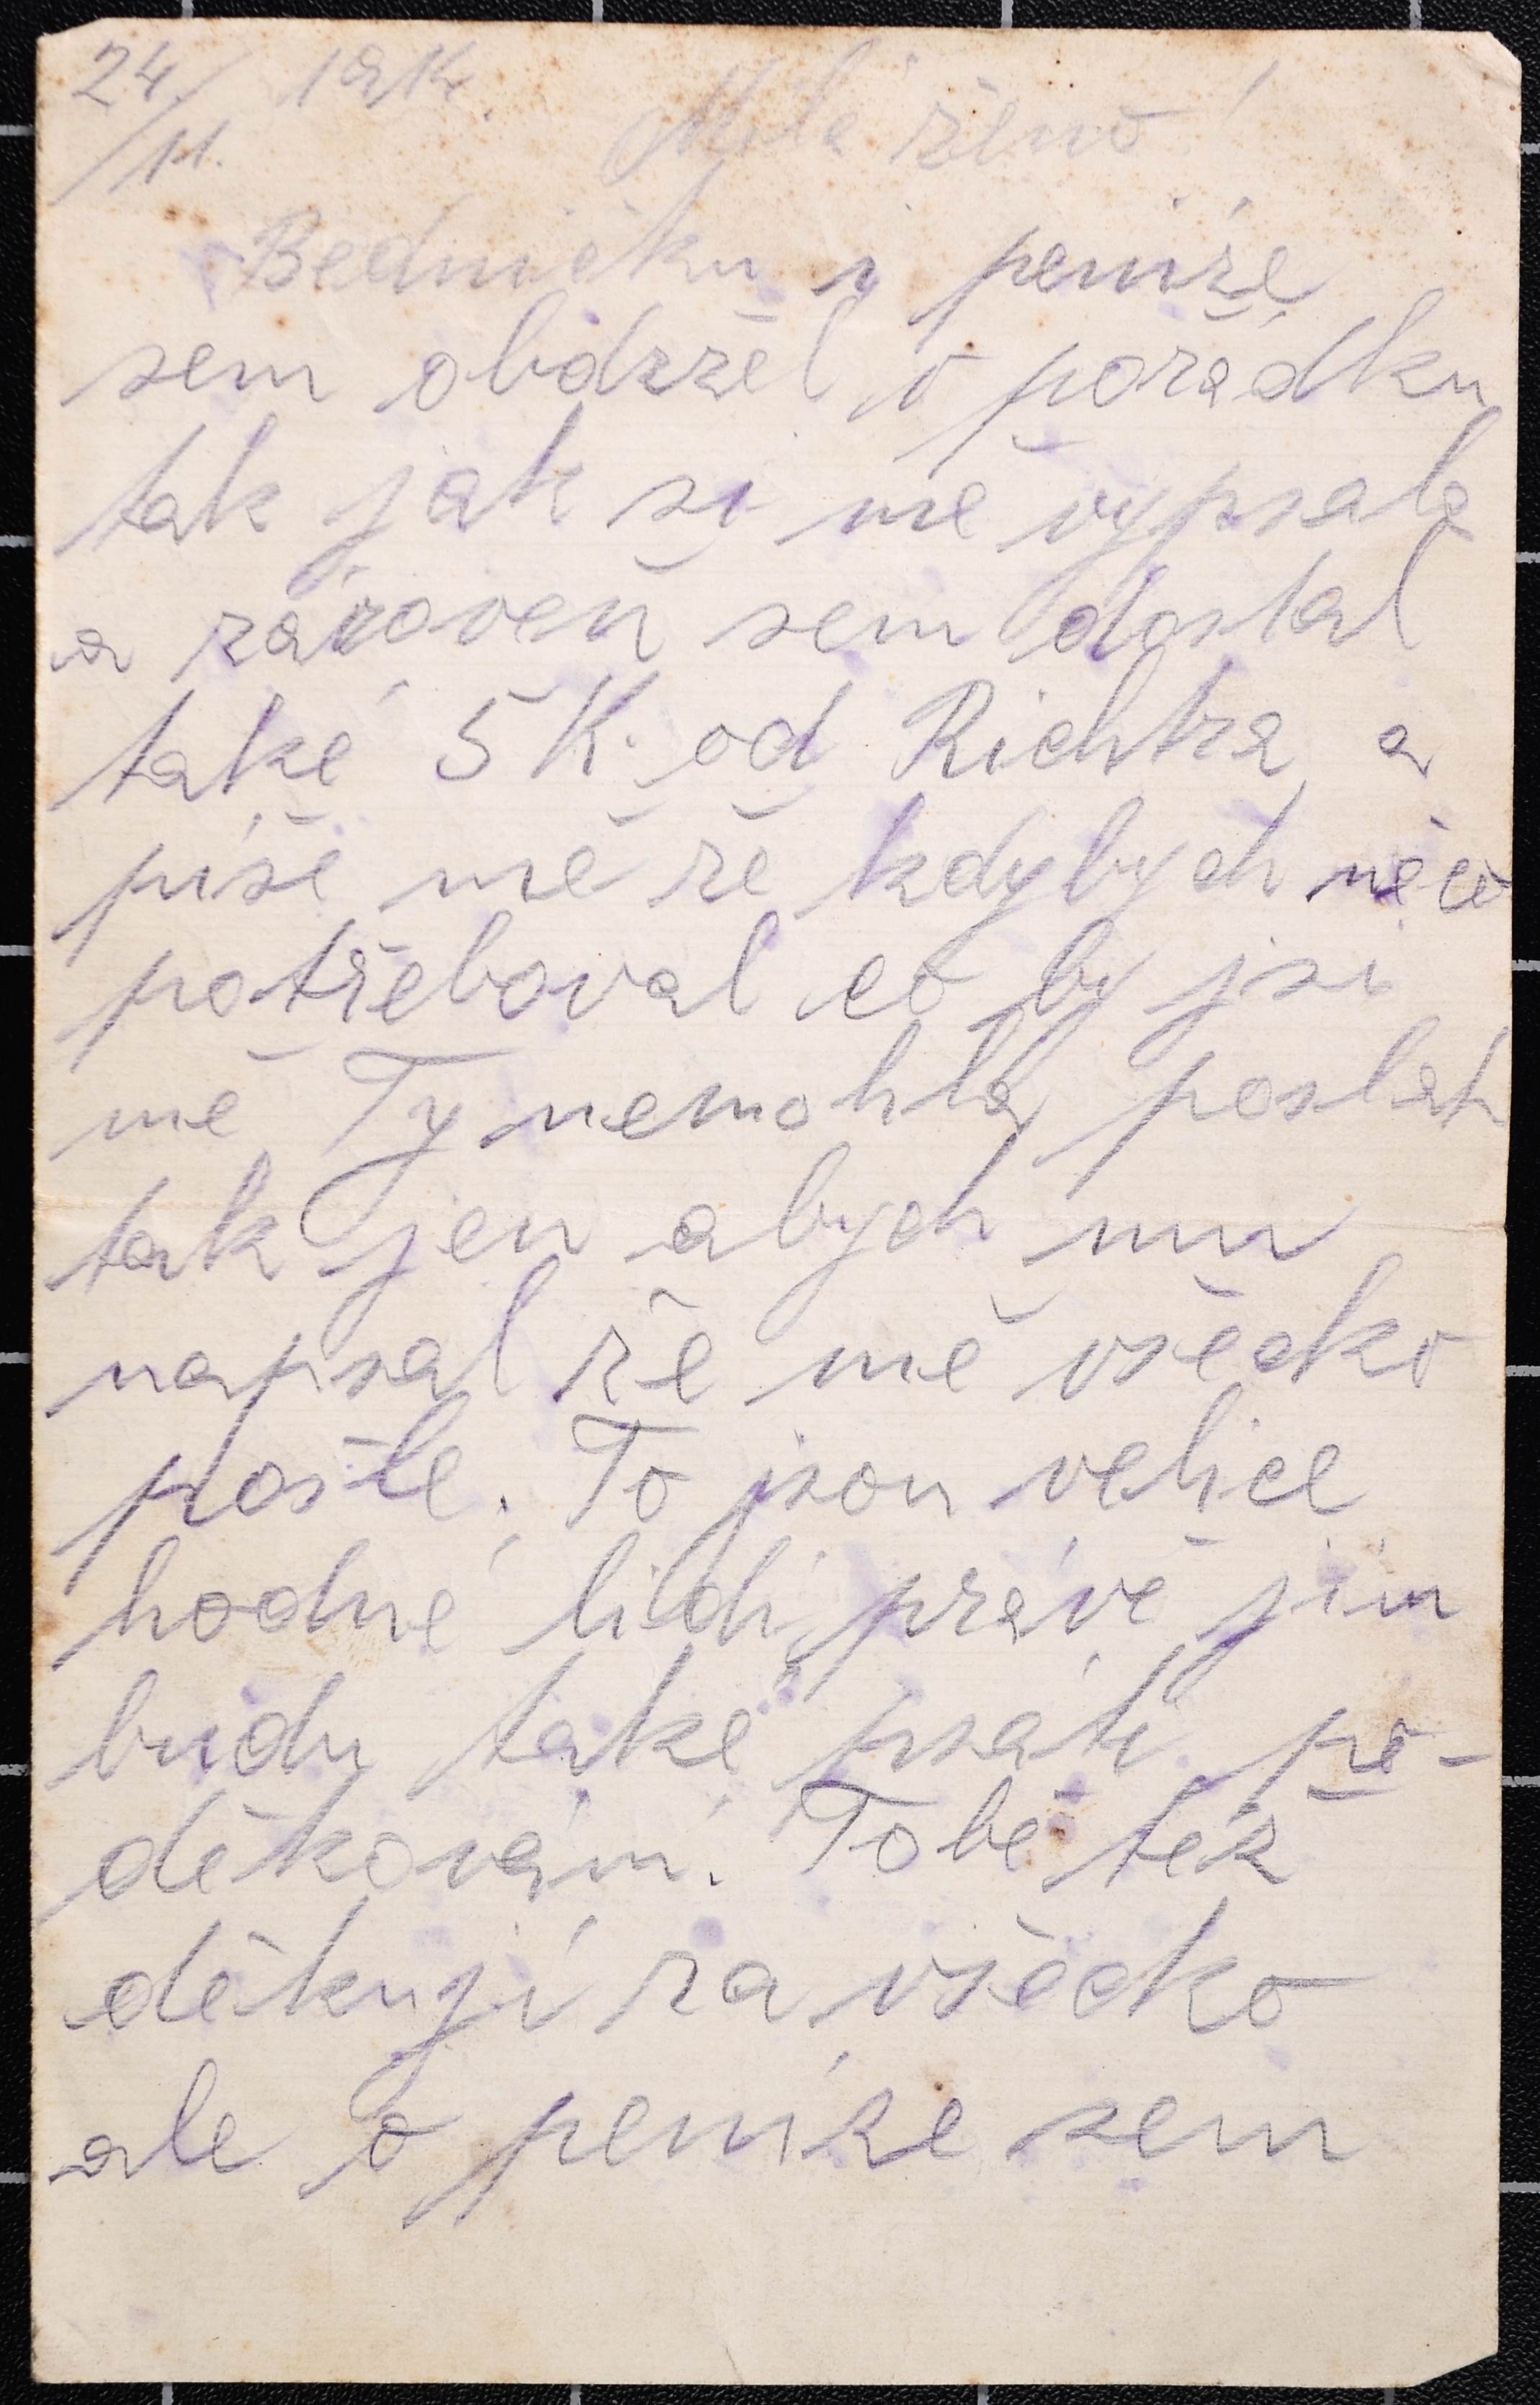 24/11. 1914.
Milá ženo!
Bedničku i peníze
sem obdržel v pořádku
tak jak si mě vypsala
a zároveň sem dostal
také 5 K. od Richtra a
píše mě že kdybych něco
potřeboval co by jsi
mě Ty nemohla poslat
tak jen abych mu
napsal že mě všecko
pošle. To jsou velice
hodné lidi, právě jim
budu také psáti po-
děkování. Tobě též
děkuji za všecko
ale o peníze sem